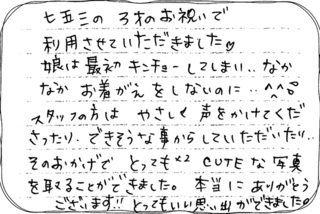 七五三の 3才のお祝いで
利用させていただきました♡
娘は最初 キンチョーしてしまい、なか
なか お着がえをしないのに‥^^;
スタッフの方は やさしく 声をかけてくだ
さったり、できそうな事からしていただいたり‥
そのおかげで とっても×2 CUTEな 写真
を取ることができました。本当に ありがとう
ございます!! とってもいい思い出ができました。